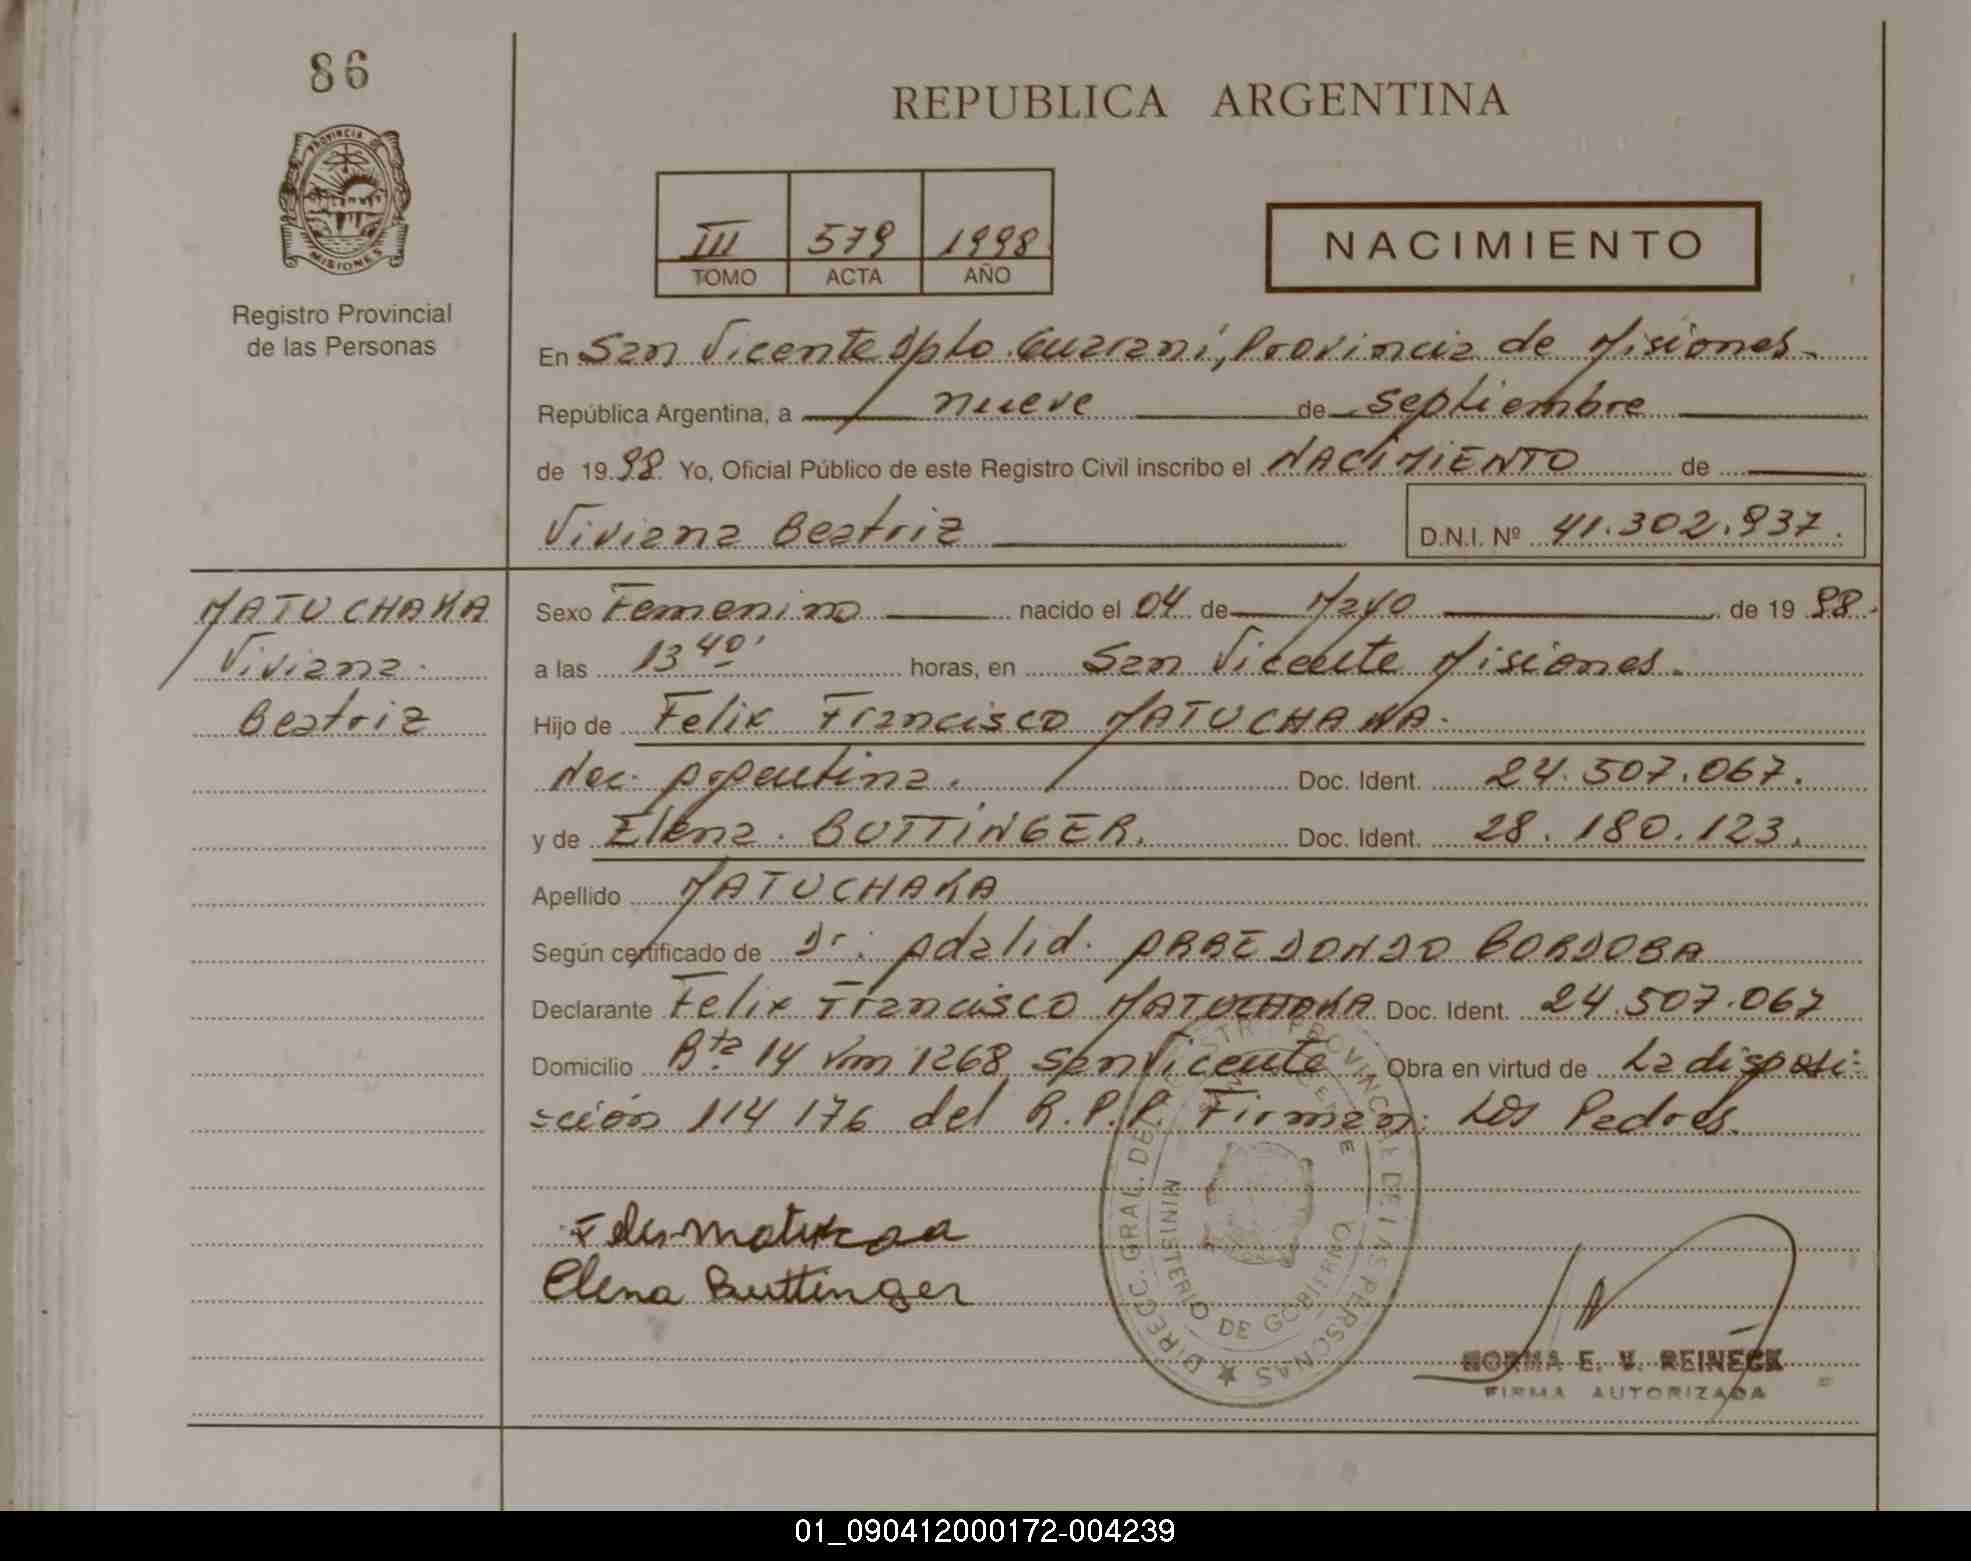 86
PROVINCIA
MISIONES
Registro Provincial
de las Personas
REPUBLICA ARGENTINA
III 579 1998
TOMO ACTA AÑO
NACIMIENTO
En San Vicente Dpto Guaraní, Provincia de Misiones
República Argentina, a nueve de septiembre
de 1998 Yo, Oficial Público de este Registro Civil inscribo el NACIMIENTO de
Viviana Beatriz D.N.I. Nº 41.302.937.
MATUCHAKA
Viviana
Beatriz
Sexo Femenino nacido el 04 de Mayo de 1998.
a las 13 40' horas, en San Vicente Misiones.
Hijo de Felix Francisco MATUCHAKA.
Nac. Argentina. Doc. Ident. 24.507.067.
y de Elena BUTTINGER. Doc. Ident. 28.180.123.
Apellido MATUCHAKA
Según certificado de Dr. Adalid ARREDONDO CORDOBA
Declarante Felix Francisco MATUCHAKA Doc. Ident. 24.507.067
Domicilio Rta 14 Km 1268 San Vicente Obra en virtud de La disposi-
-ción 114 176 del R.P.P. Firman: Los Padres.
Elena Buttinger
DIRECC. GRAL. DEL REGISTR. PROVINCIAL DE LAS PERSONAS
MINISTERIO DE GOBIERNO
NORMA E. V. REINECK
FIRMA AUTORIZADA
01_090412000172-004239